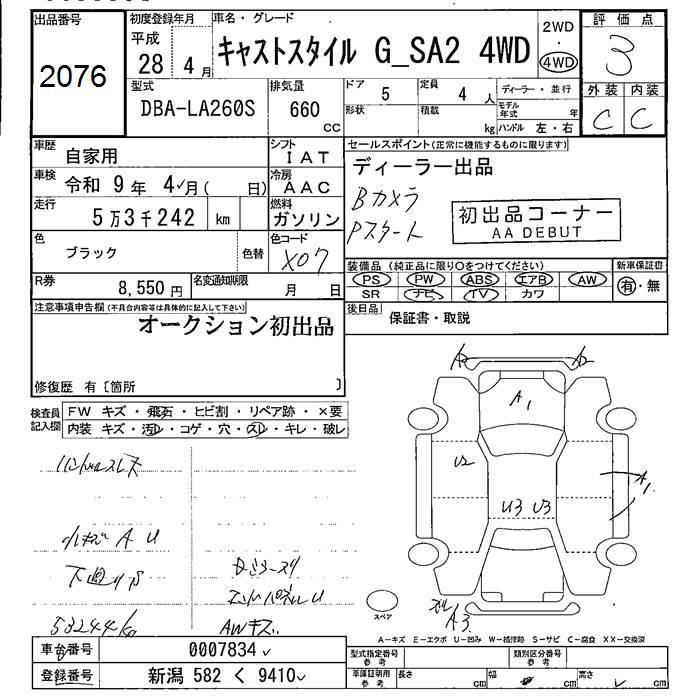 出品番号
2076
初度登録年月
平成
28 4月
車名・グレード
キャストスタイル G_SA2 4WD
2WD
・
4WD
評価点
3
外装 内装
C C
型式
DBA-LA260S
排気量
660
cc
ドア
5
形状
定員
4 人
積載
kg
ディーラー・並行
モデル年式 年
ハンドル 左・右
車歴
自家用
シフト
IAT
車検
令和 9年 4月( 日)
冷房
AAC
走行
5万3千242 km
燃料
ガソリン
色
ブラック
色替
色コード
X07
R券
8,550円
名変通知期限
月 日
セールスポイント(正常に機能するものに限ります)
ディーラー出品
Bカメラ
Pスタート
初出品コーナー
AA DEBUT
装備品(純正品に限り○をつけてください)
PS PW ABS エアB AW
SR ナビ TV カワ
新車保証書
有・無
後日品
保証書・取説
注意事項申告欄(不具合内容等は具体的に記入して下さい)
オークション初出品
修復歴 有〔箇所 〕
検査員記入欄
FW キズ・飛石・ヒビ割・リペア跡・×要
内装 キズ・汚レ・コゲ・穴・スレ・キレ・破レ
ハンドルスレ
小キズ A U
下廻りS
エンドパネルU
53244k
AWキズ
A2 A2
A1
U2
U3 U3
A1
A3
スペア
A-キズ E-エクボ U-凹み W-補修跡 S-サビ C-腐食 XX-交換済
車台番号
0007834
登録番号
新潟 582 く 9410
型式指定番号
参考
類別区分番号
参考
車庫証明用
参考
長さ cm
幅 cm
高さ cm